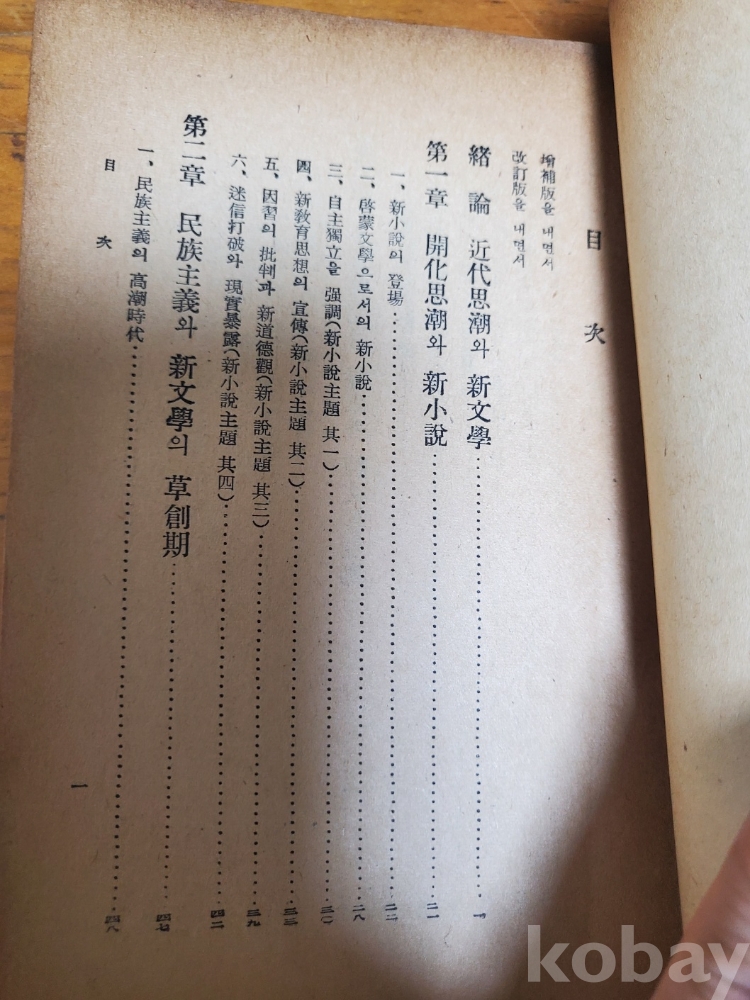 目 次
增補版을 내면서
改訂版을 내면서
緖 論 近代思潮와 新文學 ········ 一
第一章 開化思潮와 新小說 ········ 二一
一、新小說의 登場 ········ 二二
二、啓蒙文學으로서의 新小說 ········ 二八
三、自主獨立을 强調(新小說主題 其一) ········ 三〇
四、新敎育思想의 宣傳(新小說主題 其二) ········ 三三
五、因習의 批判과 新道德觀(新小說主題 其三) ········ 三九
六、迷信打破와 現實暴露(新小說主題 其四) ········ 四二
第二章 民族主義와 新文學의 草創期 ········ 四七
一、民族主義의 高潮時代 ········ 四八
目 次
一
kobay